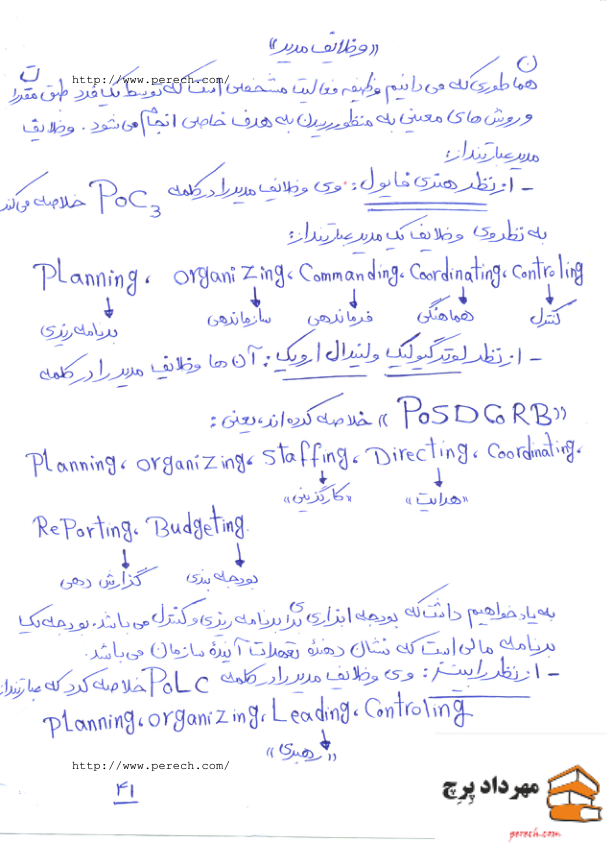 «وظایف مدیر»
http://www.perech.com/
هما طوری که می دانیم وظیفه فعالیت مشخصی است که توسط یک فرد طبق مقررا
ن ت
و روش های معینی به منظور رسیدن به هدف خاصی انجام می شود. وظایف
مدیر عبارتنداز:
- از نظر هنری فایول: وی وظایف مدیر را در کلمه POC3 خلاصه می کند
به نظر وی وظایف یک مدیر عبارتنداز:
Planning، organizing، Commanding، Coordinating، Controling
برنامه ریزی سازماندهی فرماندهی هماهنگی کنترل
- از نظر لوترگیولیک ولیندال ارویک: آن ها وظایف مدیر را در کلمه
«POSDCoRB» خلاصه کرده اند، یعنی:
Planning، organizing، Staffing، Directing، Coordinating،
«کارگزینی» «هدایت»
RePorting، Budgeting.
گزارش دهی بودجه بندی
به یاد خواهیم داشت که بودجه ابزاری برا برنامه ریزی و کنترل می باشد. بودجه یک
ی
برنامه مالی است که نشان دهندۀ تعهدات آیندۀ سازمان می باشد.
- از نظر رابینز: وی وظایف مدیر را در کلمه PoLC خلاصه کرد که عبارتنداز
Planning، organizing، Leading، Controling
«رهبری»
http://www.perech.com/
۴۱
مهرداد پرچ
perech.com